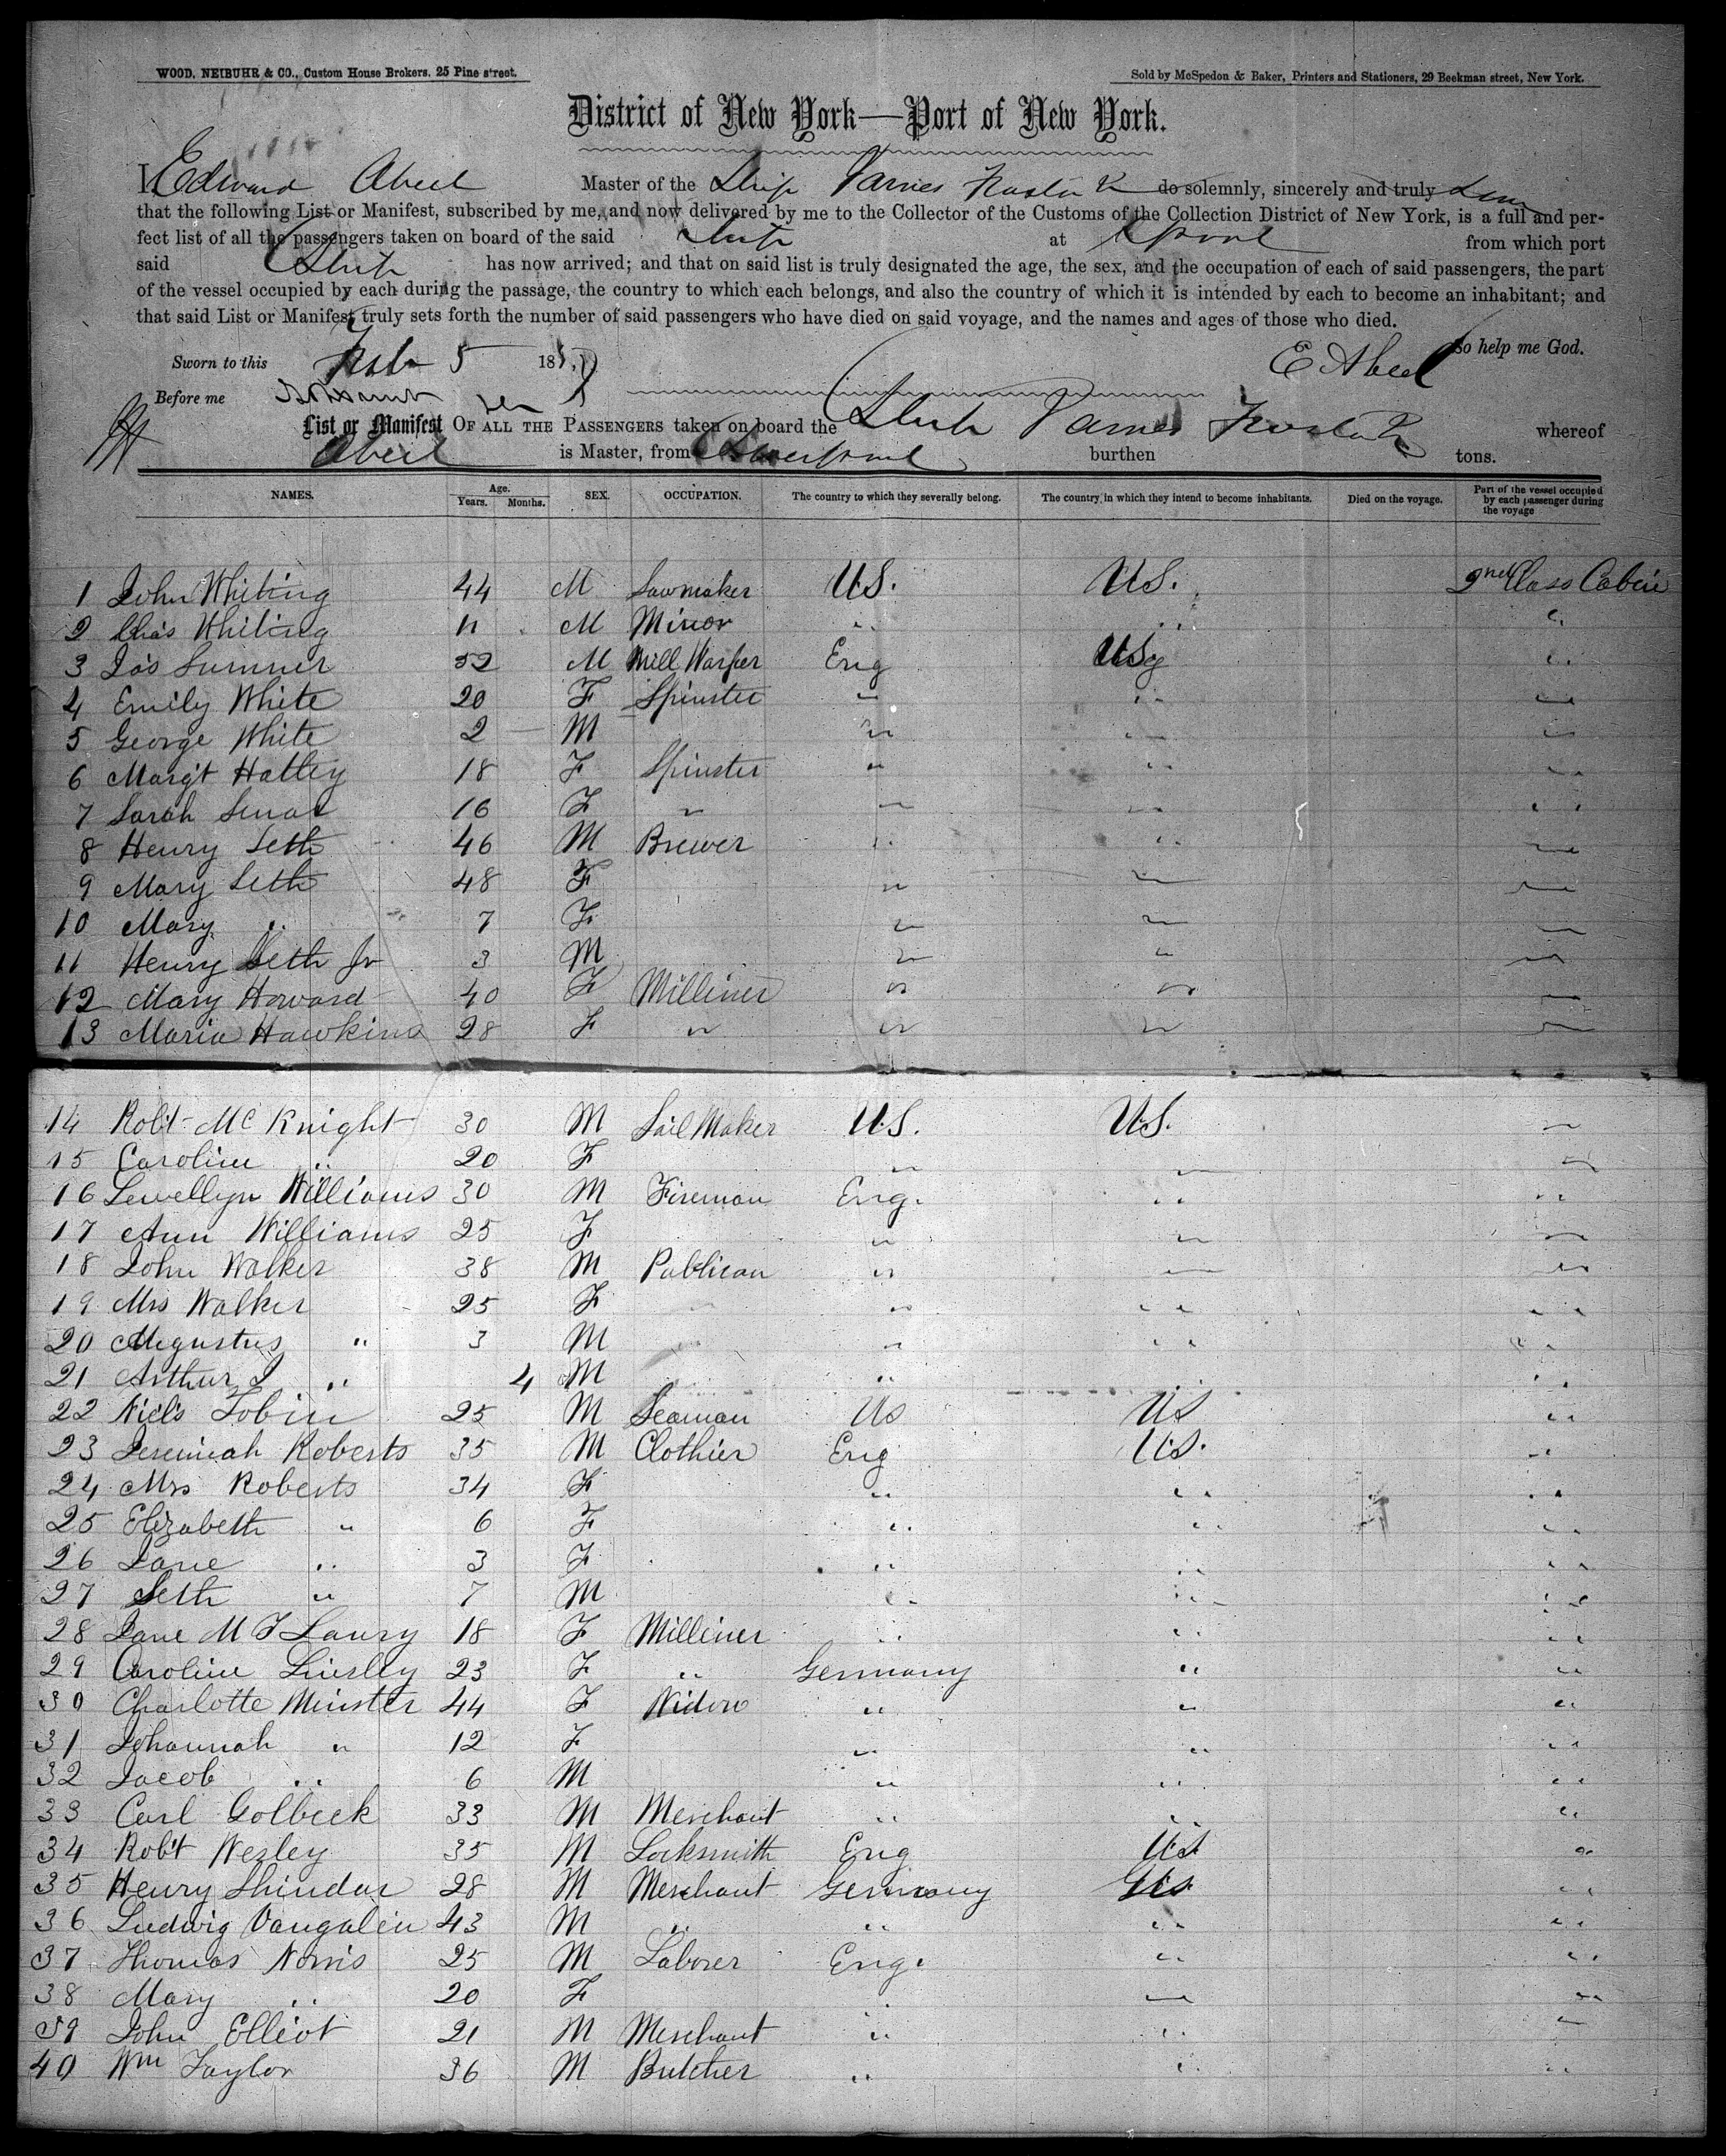 WOOD, NEIBUHR & CO., Custom House Brokers, 25 Pine street.
Sold by McSpedon & Baker, Printers and Stationers, 29 Beekman street, New York.
District of New York—Port of New York.
I Edward Abeel Master of the Ship James Foster Jr do solemnly, sincerely and truly
that the following List or Manifest, subscribed by me, and now delivered by me to the Collector of the Customs of the Collection District of New York, is a full and per-
fect list of all the passengers taken on board of the said Ship at Lpool from which port
said Ship has now arrived; and that on said list is truly designated the age, the sex, and the occupation of each of said passengers, the part
of the vessel occupied by each during the passage, the country to which each belongs, and also the country of which it is intended by each to become an inhabitant; and
that said List or Manifest truly sets forth the number of said passengers who have died on said voyage, and the names and ages of those who died.
So help me God.
Sworn to this Feb 5 1857
E Abeel
Before me
List or Manifest OF ALL THE PASSENGERS taken on board the Ship James Foster Jr whereof
Abeel is Master, from Liverpool burthen tons.
NAMES. Age. Years. Months. SEX. OCCUPATION. The country to which they severally belong. The country in which they intend to become inhabitants. Died on the voyage. Part of the vessel occupied by each passenger during the voyage
1 John Whiting 44 M Sawmaker U.S. U.S. 2nd Class Cabin
2 Chas Whiting 11 M Minor " " "
3 Jas Sumner 52 M Mill Warper Eng US "
4 Emily White 20 F Spinster " " "
5 George White 2 M " " "
6 Margt Hatley 18 F Spinster " " "
7 Sarah 16 F " " " "
8 Henry Seth 46 M Brewer " " "
9 Mary Seth 48 F " " "
10 Mary " 7 F " " "
11 Henry Seth Jr 3 M " " "
12 Mary Howard 40 F Milliner " " "
13 Maria Hawkins 28 F " " " "
14 Robt McKnight 30 M Sail Maker U.S. U.S. "
15 Caroline " 20 F " " "
16 Lewellyn Williams 30 M Fireman Eng. " "
17 Ann Williams 25 F " " "
18 John Walker 38 M Publican " " "
19 Mrs Walker 25 F " " "
20 Augustus " 3 M " " "
21 Arthur J " 4 M " " "
22 Niels Tobin 25 M Seaman US US "
23 Jeremiah Roberts 35 M Clothier Eng U.S. "
24 Mrs Roberts 34 F " " "
25 Elizabeth " 6 F " " "
26 Jane " 3 F " " "
27 Seth " 7 M " " "
28 Jane 18 F Milliner " " "
29 Caroline Linsley 23 F " Germany " "
30 Charlotte Minster 44 F Widow " " "
31 Johannah " 12 F " " "
32 Jacob " 6 M " " "
33 Carl Golbeck 33 M Merchant " " "
34 Robt Wesley 35 M Locksmith Eng US "
35 Henry Shindar 28 M Merchant Germany US "
36 Ludwig Vangalein 43 M " " " "
37 Thomas Norris 25 M Laborer Eng. " "
38 Mary " 20 F " "
39 John Elliot 21 M Merchant " " "
40 Wm Taylor 36 M Butcher " " "